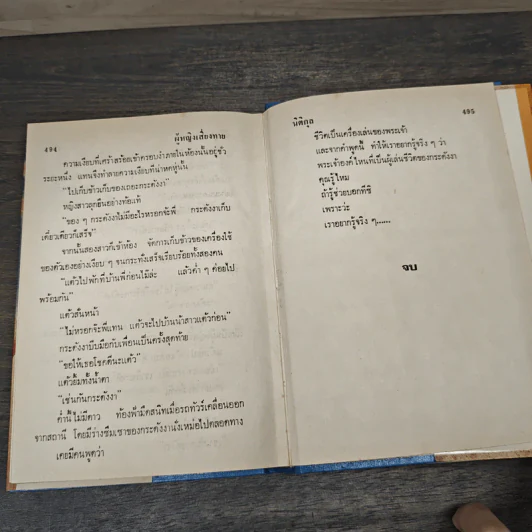 494
ผู้หญิงเสี่ยงทาย
ความเงียบที่เศร้าสร้อยเข้าครอบงำภายในห้องนั้นอยู่ชั่ว
ระยะหนึ่ง แทนจึงทำลายความเงียบที่น่าหดหู่นั้น
"ไปเก็บข้าวเก็บของเถอะกระดังงา"
หญิงสาวลุกยืนอย่างท้อแท้
"ของ ๆ กระดังงาไม่มีอะไรหรอกจ้ะพี่ กระดังงาเก็บ
เดี๋ยวเดียวก็เสร็จ"
จากนั้นสองสาวก็เข้าห้อง จัดการเก็บข้าวของเครื่องใช้
ของตัวเองอย่างเงียบ ๆ จนกระทั่งเสร็จเรียบร้อยทั้งสองคน
"แต้วไปพักที่บ้านพี่ก่อนไม๊ล่ะ แล้วค่ำ ๆ ค่อยไป
พร้อมกัน"
แต้วสั่นหน้า
"ไม่หรอกจ้ะพี่แทน แต้วจะไปบ้านน้าสาวแต้วก่อน"
กระดังงาบีบมือกับเพื่อนเป็นครั้งสุดท้าย
"ขอให้เธอโชคดีนะแต้ว"
แต้วยิ้มทั้งน้ำตา
"เช่นกันกระดังงา"
ค่ำนี้ไม่มีดาว ท้องฟ้ามืดสนิทเมื่อรถทัวร์เคลื่อนออก
จากสถานี โดยมีร่างซึมเซาของกระดังงานั่งเหม่อไปตลอดทาง
เคยมีคนพูดว่า
นิติกุล
495
ชีวิตเป็นเครื่องเล่นของพระเจ้า
และจากคำพูดนี้ ทำให้เราอยากรู้จริง ๆ ว่า
พระเจ้าองค์ไหนที่เป็นผู้เล่นชีวิตของกระดังงา
คุณรู้ไหม
ถ้ารู้ช่วยบอกทีซิ
เพราะว่ะ
เราอยากรู้จริง ๆ......
จบ